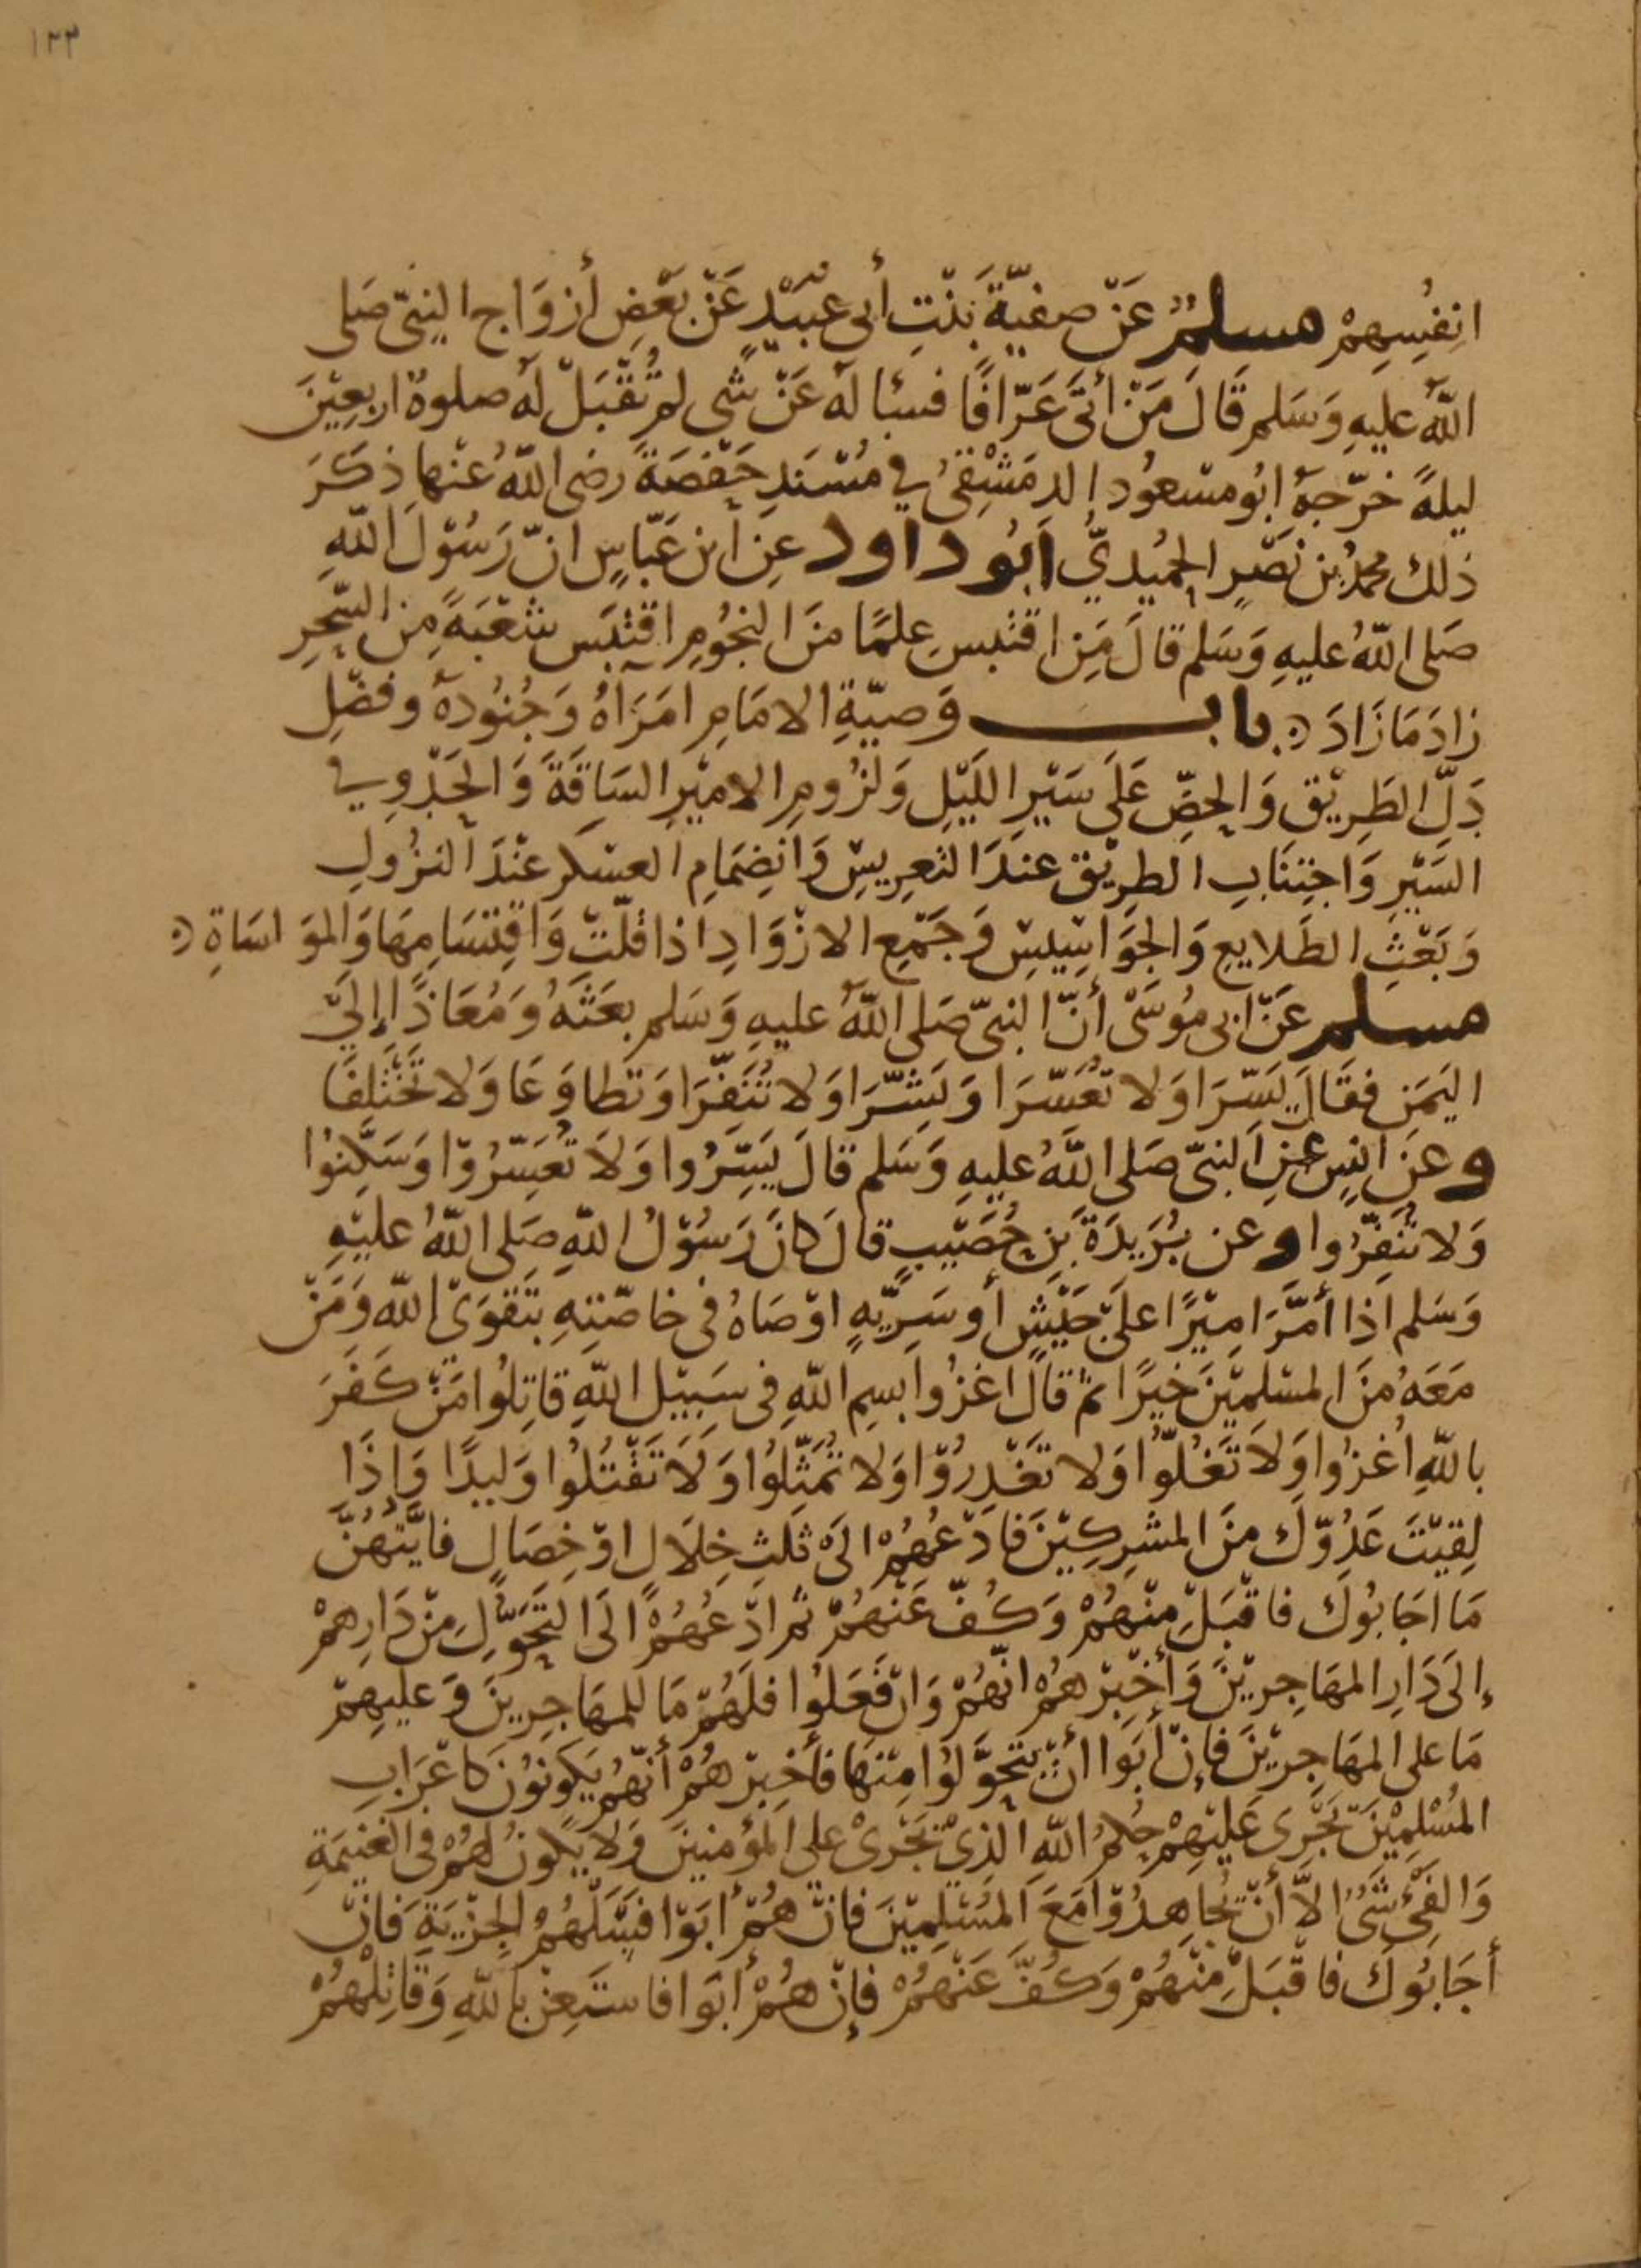 ١٢٣
انفُسِهِمْ مسلمٌ عَنْ صفيّةَ بَنْتِ أبى عبيْدٍ عَنْ بَعْضِ أزوَاج النبىّ صَلى
اللّهُ عليهِ وَسَلم قَالَ مَنْ أتَى عَرّافًا فسئا لهُ عَنْ شَى لم تُقْبَلْ لهُ صلوةُ اربعِيْنَ
ليلةً خرّجهُ ابُو مسْعُود الدمَشْقىُ في مُسْنَدِ حَفْصَةَ رضى اللّهُ عنْها ذكَرَ
ذلك محمدُ بن نصْرٍ الحمُيديُّ اَبُو داود عنِ ابن عَبّاسٍ انّ رَسُوْلَ اللّهِ
صَلى اللّهُ عليهِ وَسَلم قالَ مَنِ اقتبسِ علمًا منَ النجُومِ اقتبَس شعْبَةً مِن السّحرِ
زادَ مَا زَادَ ۞ باب وَصيّةِ الامَامِ امَرَاهُ وَجُنُودهُ وفضْلِ
دَلِّ الطَرِيْقِ وَالحضِّ عَلَى سَيْرِ اللَيْلِ وَلزُومِ الاميْرِ السَاقَةَ وَالحَدْوِ في
السَيْرِ وَاجتِنَابِ الطرِيْقِ عندَ التعرِيسِ وَانضِمَامِ العسْكر عنْدَ النزُولِ
وَبَعْثِ الطَلايعِ وَالجوَاسِيْسِ وَجَمْعِ الازْوَادِ اذا قلّتْ وَاقتِسَامِهَا وَالموَاسَاةِ ۞
مسلم عَنْ ابى مُوسَى أنّ النبىّ صَلى اللّهُ عليهِ وَسَلم بعَثَهُ وَمُعَاذًا إلىَ
اليَمَنِ فقَالَ يَسّرَا وَلا تعُسّرَا وَبَشّرَا وَلا تُنفّرَا وَتطاوَعَا وَلا تخْتلِفَا
وعنَ انسٍ عنِ النبىّ صَلى اللّهُ عليهِ وَسَلم قالَ يَسِّرُوا وَلَا تُعَسّرُوْا وَسَكِّنوُا
وَلا تُنَفِّرُوا وعن بُرَيدَةَ بَنِ حُصَيْبٍ قالَ كانَ رَسُوْلُ اللّهِ صَلى اللّهُ عليْهِ
وَسَلم اذا أمّرَ امِيْرًا علىَ جَيْشٍ أو سَرِيّهٍ اوْصَاهُ فى خاصّتِهِ بتَقوَى اللّهِ وَمَنْ
مَعَهُ منَ المسْلمِيْنَ خَيرًا ثم قالَ اغزُوا بسِمِ اللّهِ فى سَبِيْلِ اللّهِ قاتِلُوا مَنْ كَفَرَ
باللّهِ اُغزُوا وَلَا تَغلّوُا وَلا تَغْدِرُوْا وَلا تُمَثّلِوُا وَلَا تَقْتُلُوا وَليدًا وَإذَا
لِقيْتَ عَدُوّكَ منَ المشرِكِيْنَ فادْعُهُمْ الىَ ثلثِ خِلَالٍ اوْ خِصَالٍ فايّتهُنَّ
مَا اجَابوُكَ فاقْبَلْ منْهُمْ وَكفّ عَنْهُمْ ثم ادْعُهُمْ الَى التَحَوّلِ مِنْ دَارِهمْ
إلىَ دَارِ المهَاجِرِيْنَ وَأخْبِرْهُمْ انّهُمْ وَانْ فَعَلوُا فلَهُمْ مَا للمهَاجِرِينَ وَعليهِمْ
مَا على المهَاجِرِيْنَ فإنْ أبَوا أنْ يتَحَوّلوُا مِنْهَا فأخبِرْهُمْ أنّهُمْ يَكونوُنَ كاعْرَابِ
المُسْلِمِيْنَ يَجْرى عَليْهِمْ حُكمُ اللّهِ الذِىْ يَجْرىْ على المؤمنينَ وَلا يَكونُ لهُمْ فى الغنيمَةِ
وَالفَىْءِ شَىْءُ الاَّ أنْ يُجَاهِدُوْا مَعَ المُسْلِمِيْنَ فانْ هُمْ أبَوْا فسَلْهُمْ الجِزْيَةَ فَانْ
أجَابوُكَ فاقْبَلْ مِنْهُمْ وَكُفَّ عَنْهُمْ فإنْ هُمْ أبَوا فاستَعِنْ باللّهِ وَقاتِلْهُمْ